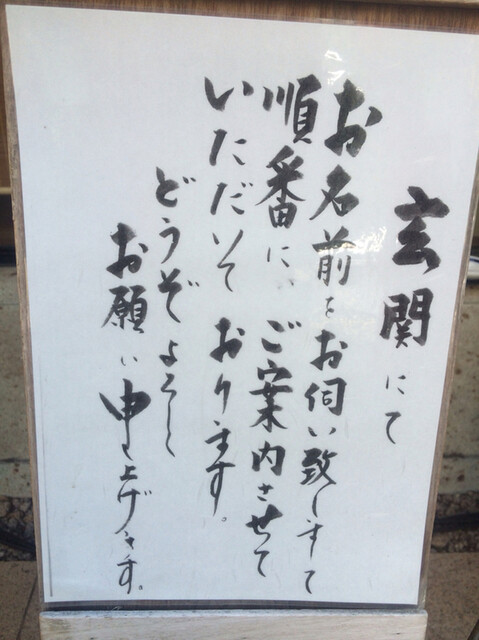 玄関にて
お名前をお伺い致しまして
順番に、ご案内させて
いただいております。
どうぞよろしく
お願い申し上げます。